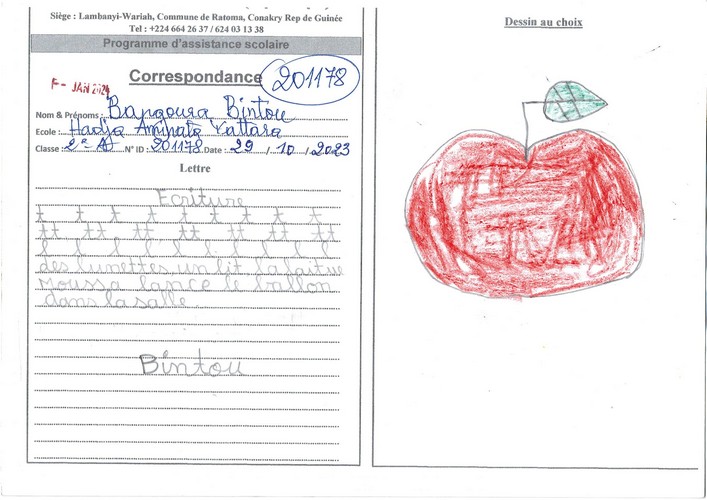 Siège : Lambanyi-Wariah, Commune de Ratoma, Conakry Rep de Guinée
Tel : +224 664 26 37 / 624 03 13 38
Programme d'assistance scolaire
F- JAN 2024
Correspondance 201178
Nom & Prénoms : Bangoura Bintou
Ecole : Hadja Aminata Yattara
Classe : 2e A N° ID : 201178 Date : 29 / 10 / 2023
Lettre
Ecriture
t t t t t t t t
tt tt tt tt tt tt tt
l l l l l l l l l
des lunettes un lit la laitue
Moussa lance le ballon
dans la salle
Bintou
Dessin au choix